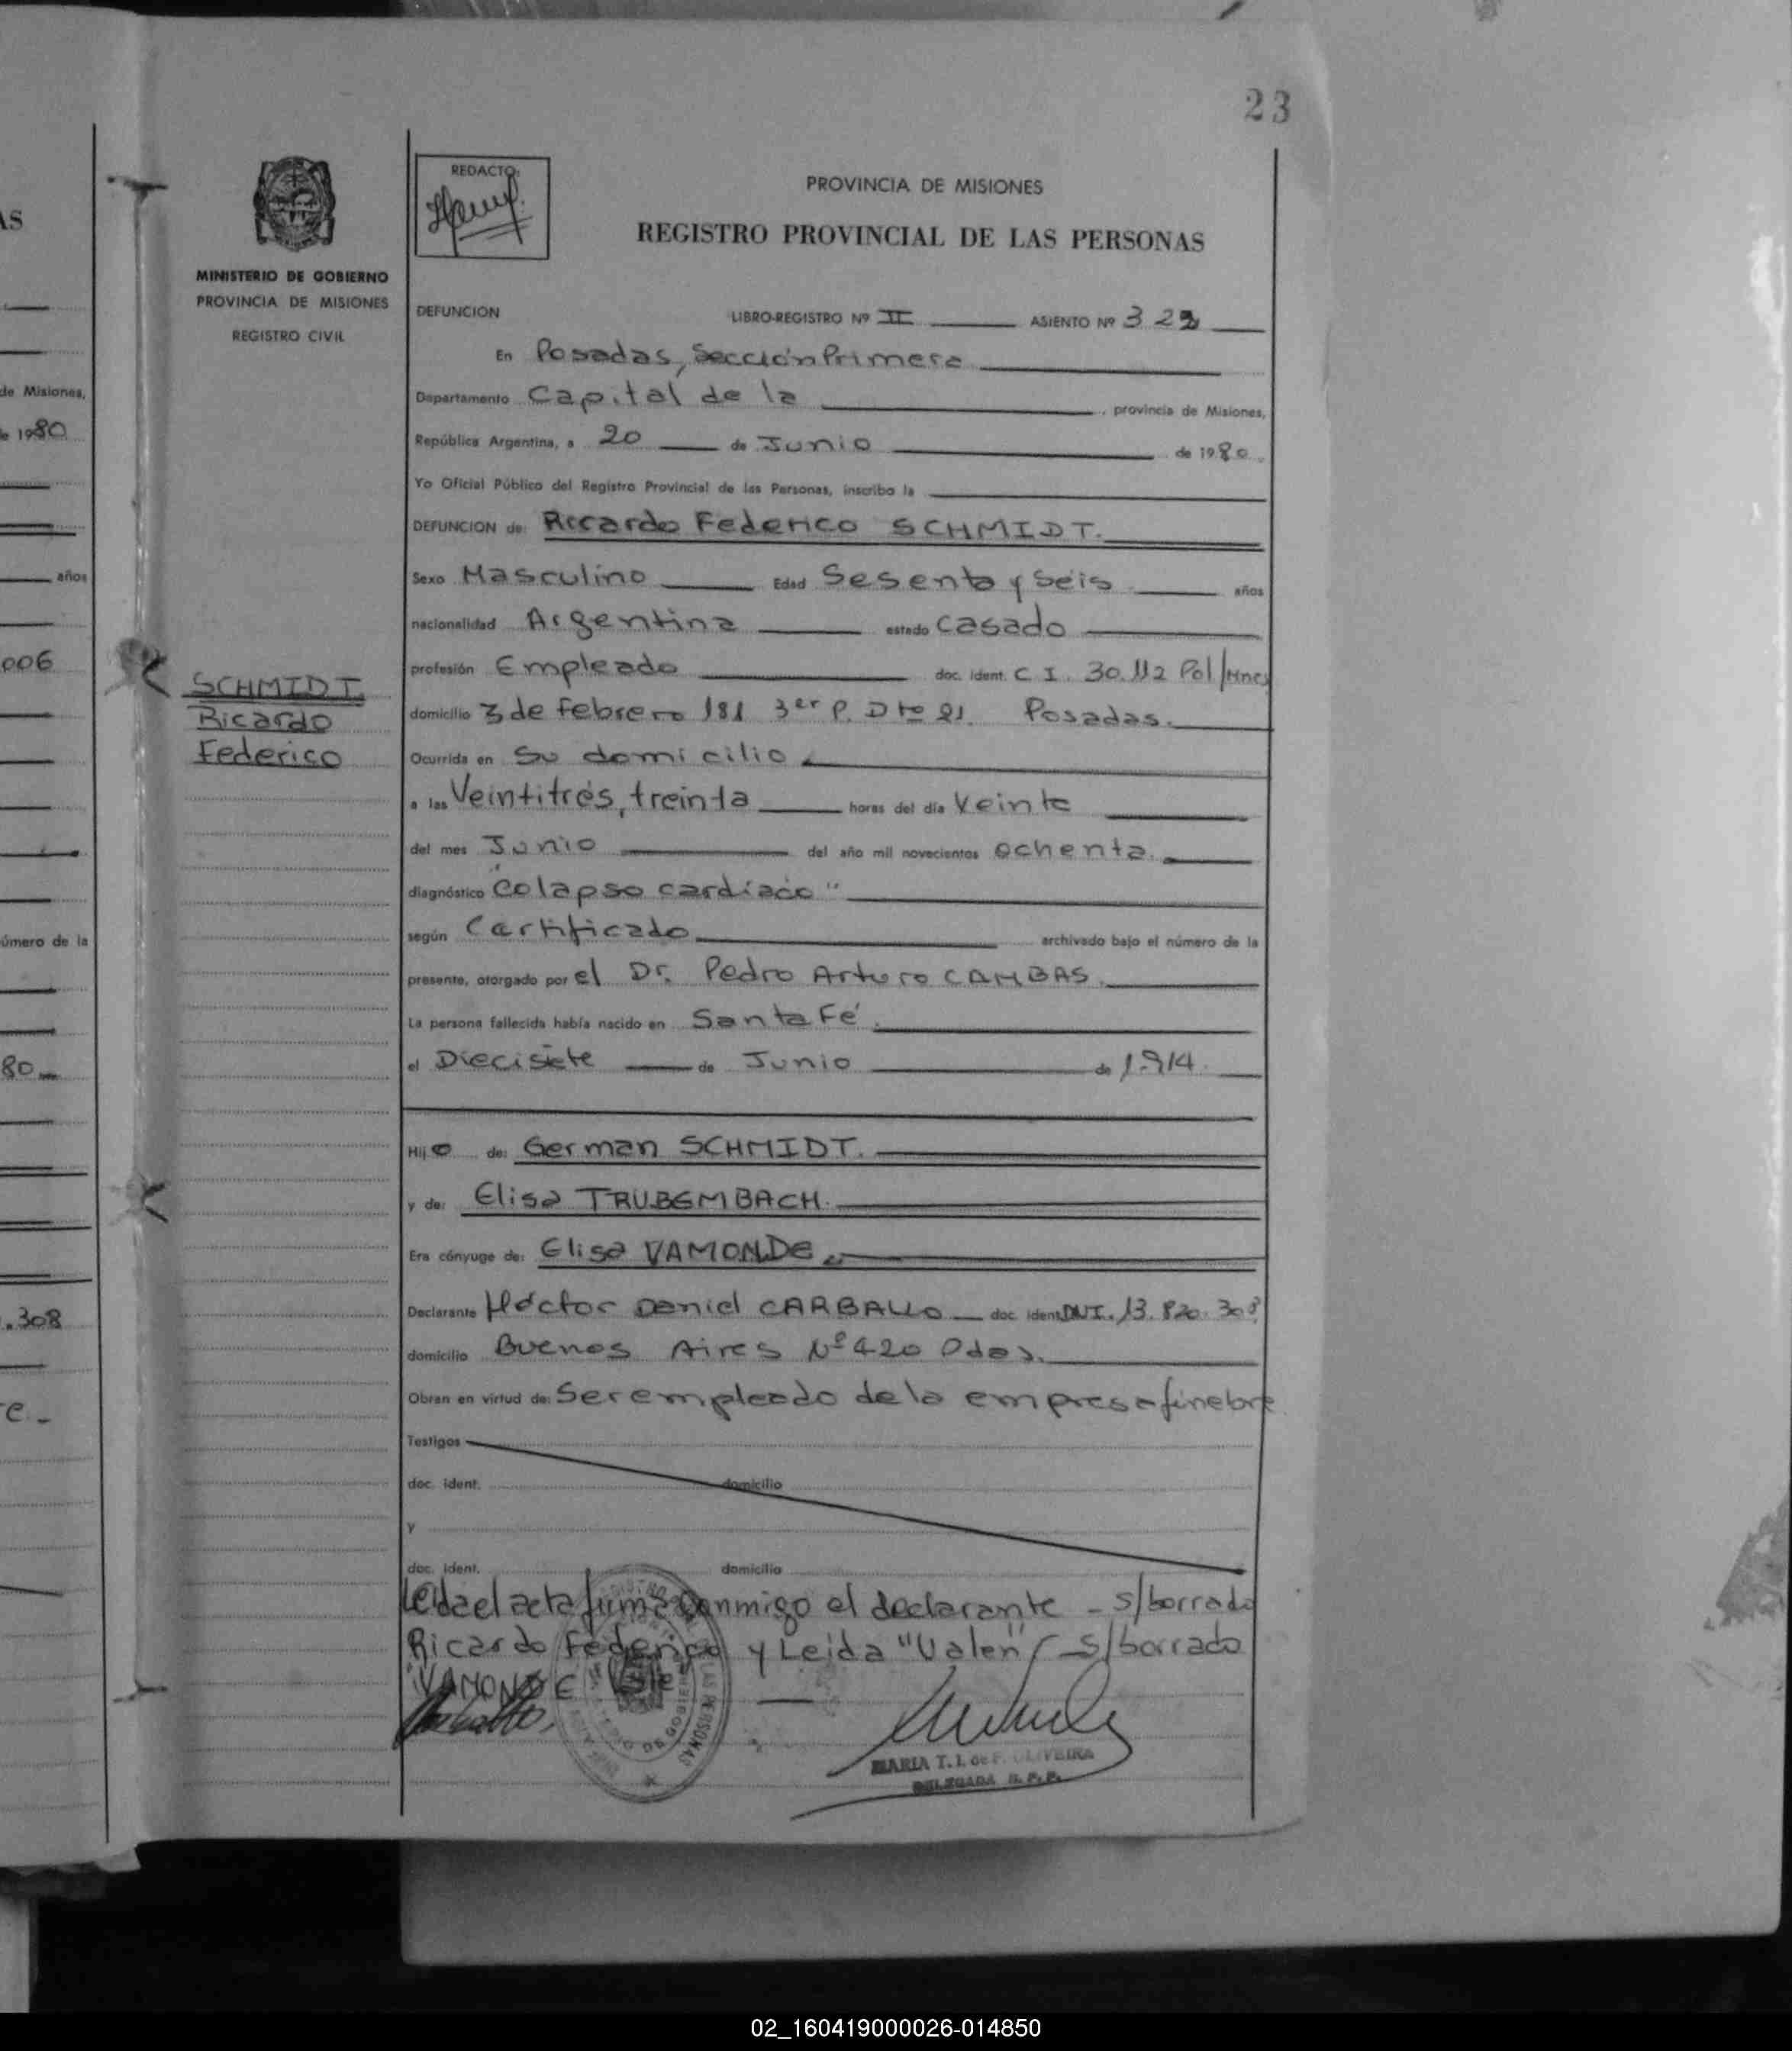 23
AS
de Misiones,
de 1980
años
006
úmero de la
80
.308
e.-
MINISTERIO DE GOBIERNO
PROVINCIA DE MISIONES
REGISTRO CIVIL
SCHMIDT
Ricardo
Federico
REDACTO:
PROVINCIA DE MISIONES
REGISTRO PROVINCIAL DE LAS PERSONAS
DEFUNCION LIBRO-REGISTRO Nº II ASIENTO Nº 329
En Posadas, Sección Primera
Departamento Capital de la , provincia de Misiones,
República Argentina, a 20 de Junio de 1980.
Yo Oficial Público del Registro Provincial de las Personas, inscribo la
DEFUNCION de: Ricardo Federico SCHMIDT.
Sexo Masculino Edad Sesenta y Seis años
nacionalidad Argentina estado Casado
profesión Empleado doc. ident. C I. 30.112 Pol/Mnes
domicilio 3 de Febrero 181 3er P. Dto 21. Posadas.
Ocurrida en Su domicilio
a las Veintitrés, treinta horas del día Veinte
del mes Junio del año mil novecientos Ochenta.
diagnóstico "Colapso cardíaco"
según Certificado archivado bajo el número de la
presente, otorgado por el Dr. Pedro Arturo CAMBAS.
La persona fallecida había nacido en Santa Fé.
el Diecisiete de Junio de 1.914.
Hijo de: German SCHMIDT.
y de: Elisa TRUBEMBACH.
Era cónyuge de: Elisa VAMONDE.
Declarante Héctor Daniel CARBALLO doc. ident. DNI. 13.820.308
domicilio Buenos Aires Nº 420 Pdas.
Obran en virtud de: Ser empleado de la empresa fúnebre
Testigos
doc. ident. domicilio
y
doc. ident. domicilio
Leida el acta firma conmigo el declarante - S/borrado
Ricardo Federico y Leida "Valen" - S/borrado
"VAMONDE" Vale
MARIA T. I. de F. OLIVEIRA
DELEGADA R. P. P.
02_160419000026-014850